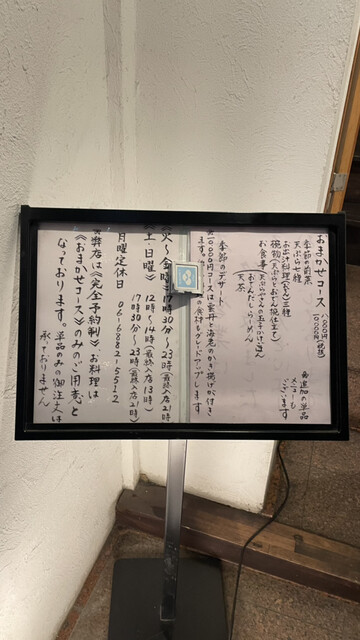 おまかせコース
季節の前菜
天ぷら七種
お出汁料理(おでん)三種
椀物(天ぷらとおでん椀仕立て)
お食事
天ぷらやさんの玉子かけごはん
おでんだしらーめん
天茶
季節のデザート
追加の単品
メニューも
ございます
コースは雲丹と海老のかき揚げが付き
の食材もグレードアップします
火〜金 17時30分〜23時(最終入店21時)
土・日曜 12時〜14時(最終入店13時)
17時30分〜23時(最終入店21時)
月曜定休日 06-6882-5512
弊店は《完全予約制》、お料理は
《おまかせコース》のみのご用意と
なっております。単品のみの御注文は
承っておりません